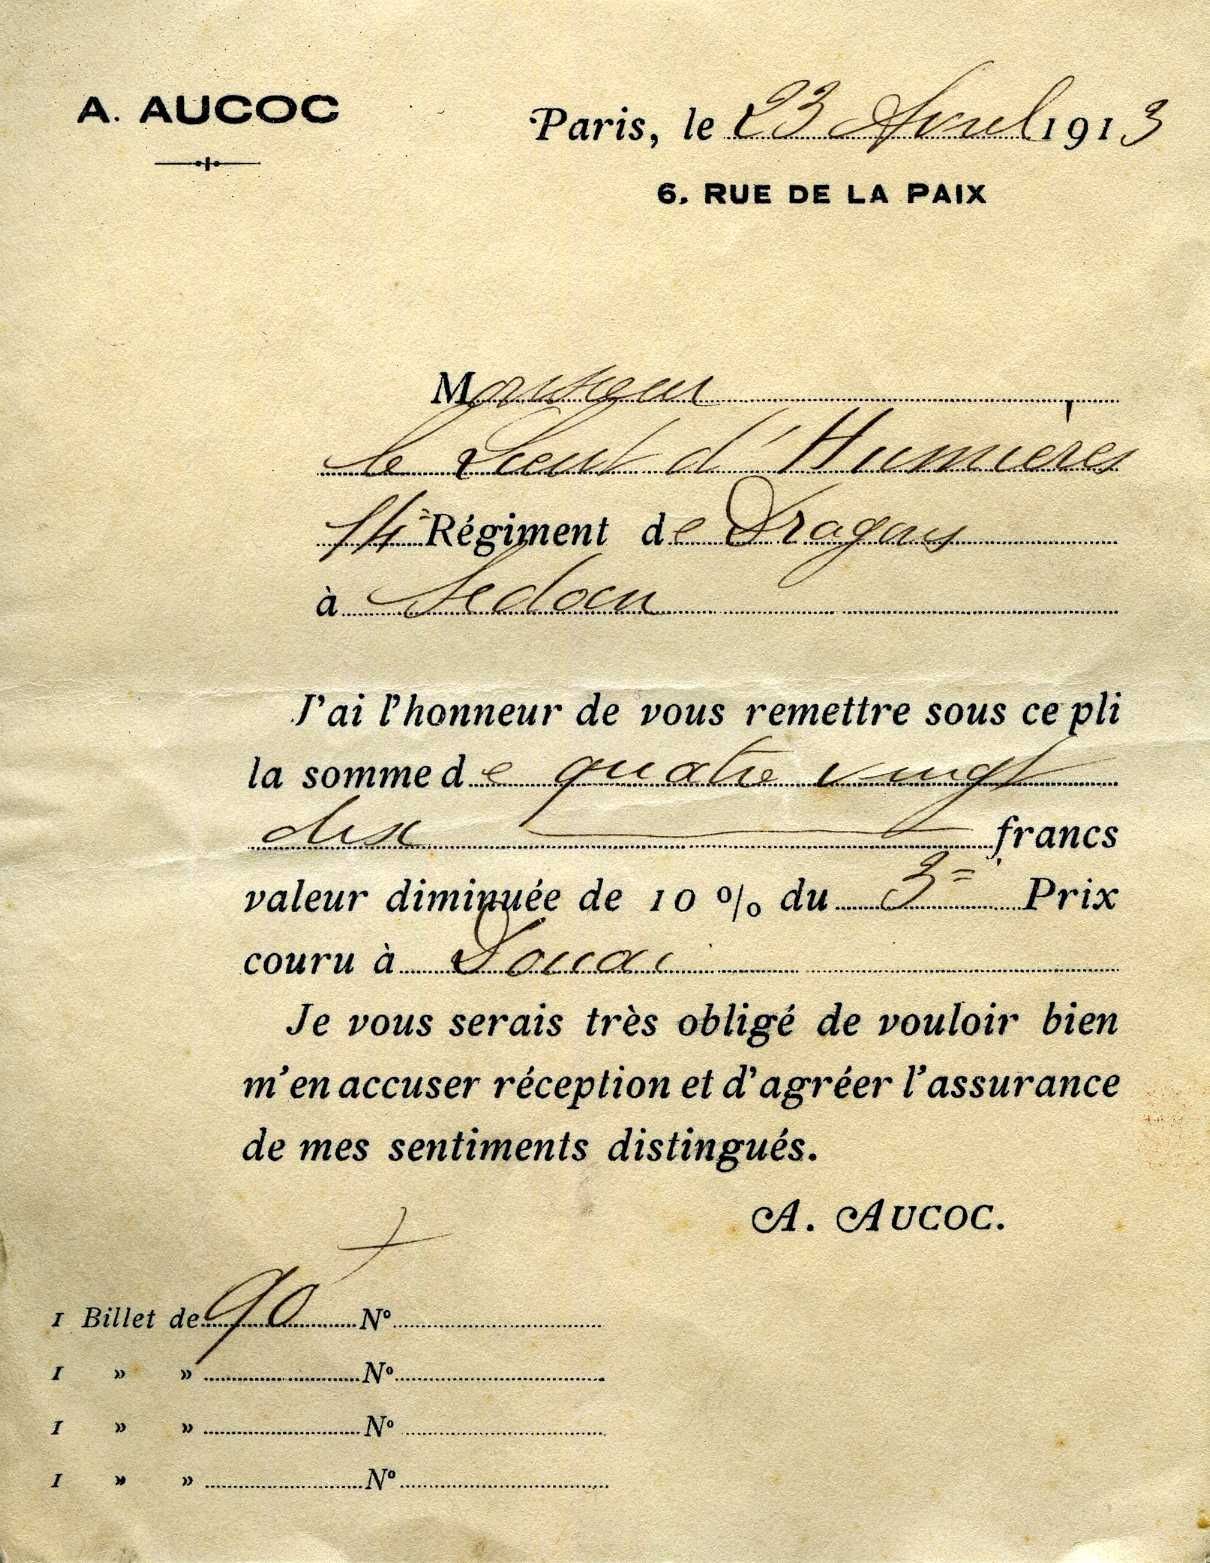 A. AUCOC
Paris, le 23 Avril 1913
6, RUE DE LA PAIX
Monsieur
le Lieut d'Humières
14e Régiment de Dragons
à Sedan
J'ai l'honneur de vous remettre sous ce pli
la somme de quatre vingt
dix francs
valeur diminuée de 10 % du 3e Prix
couru à Douai
Je vous serais très obligé de vouloir bien
m'en accuser réception et d'agréer l'assurance
de mes sentiments distingués.
A. AUCOC.
1 Billet de 90 Nº
1 » » Nº
1 » » Nº
1 » » Nº